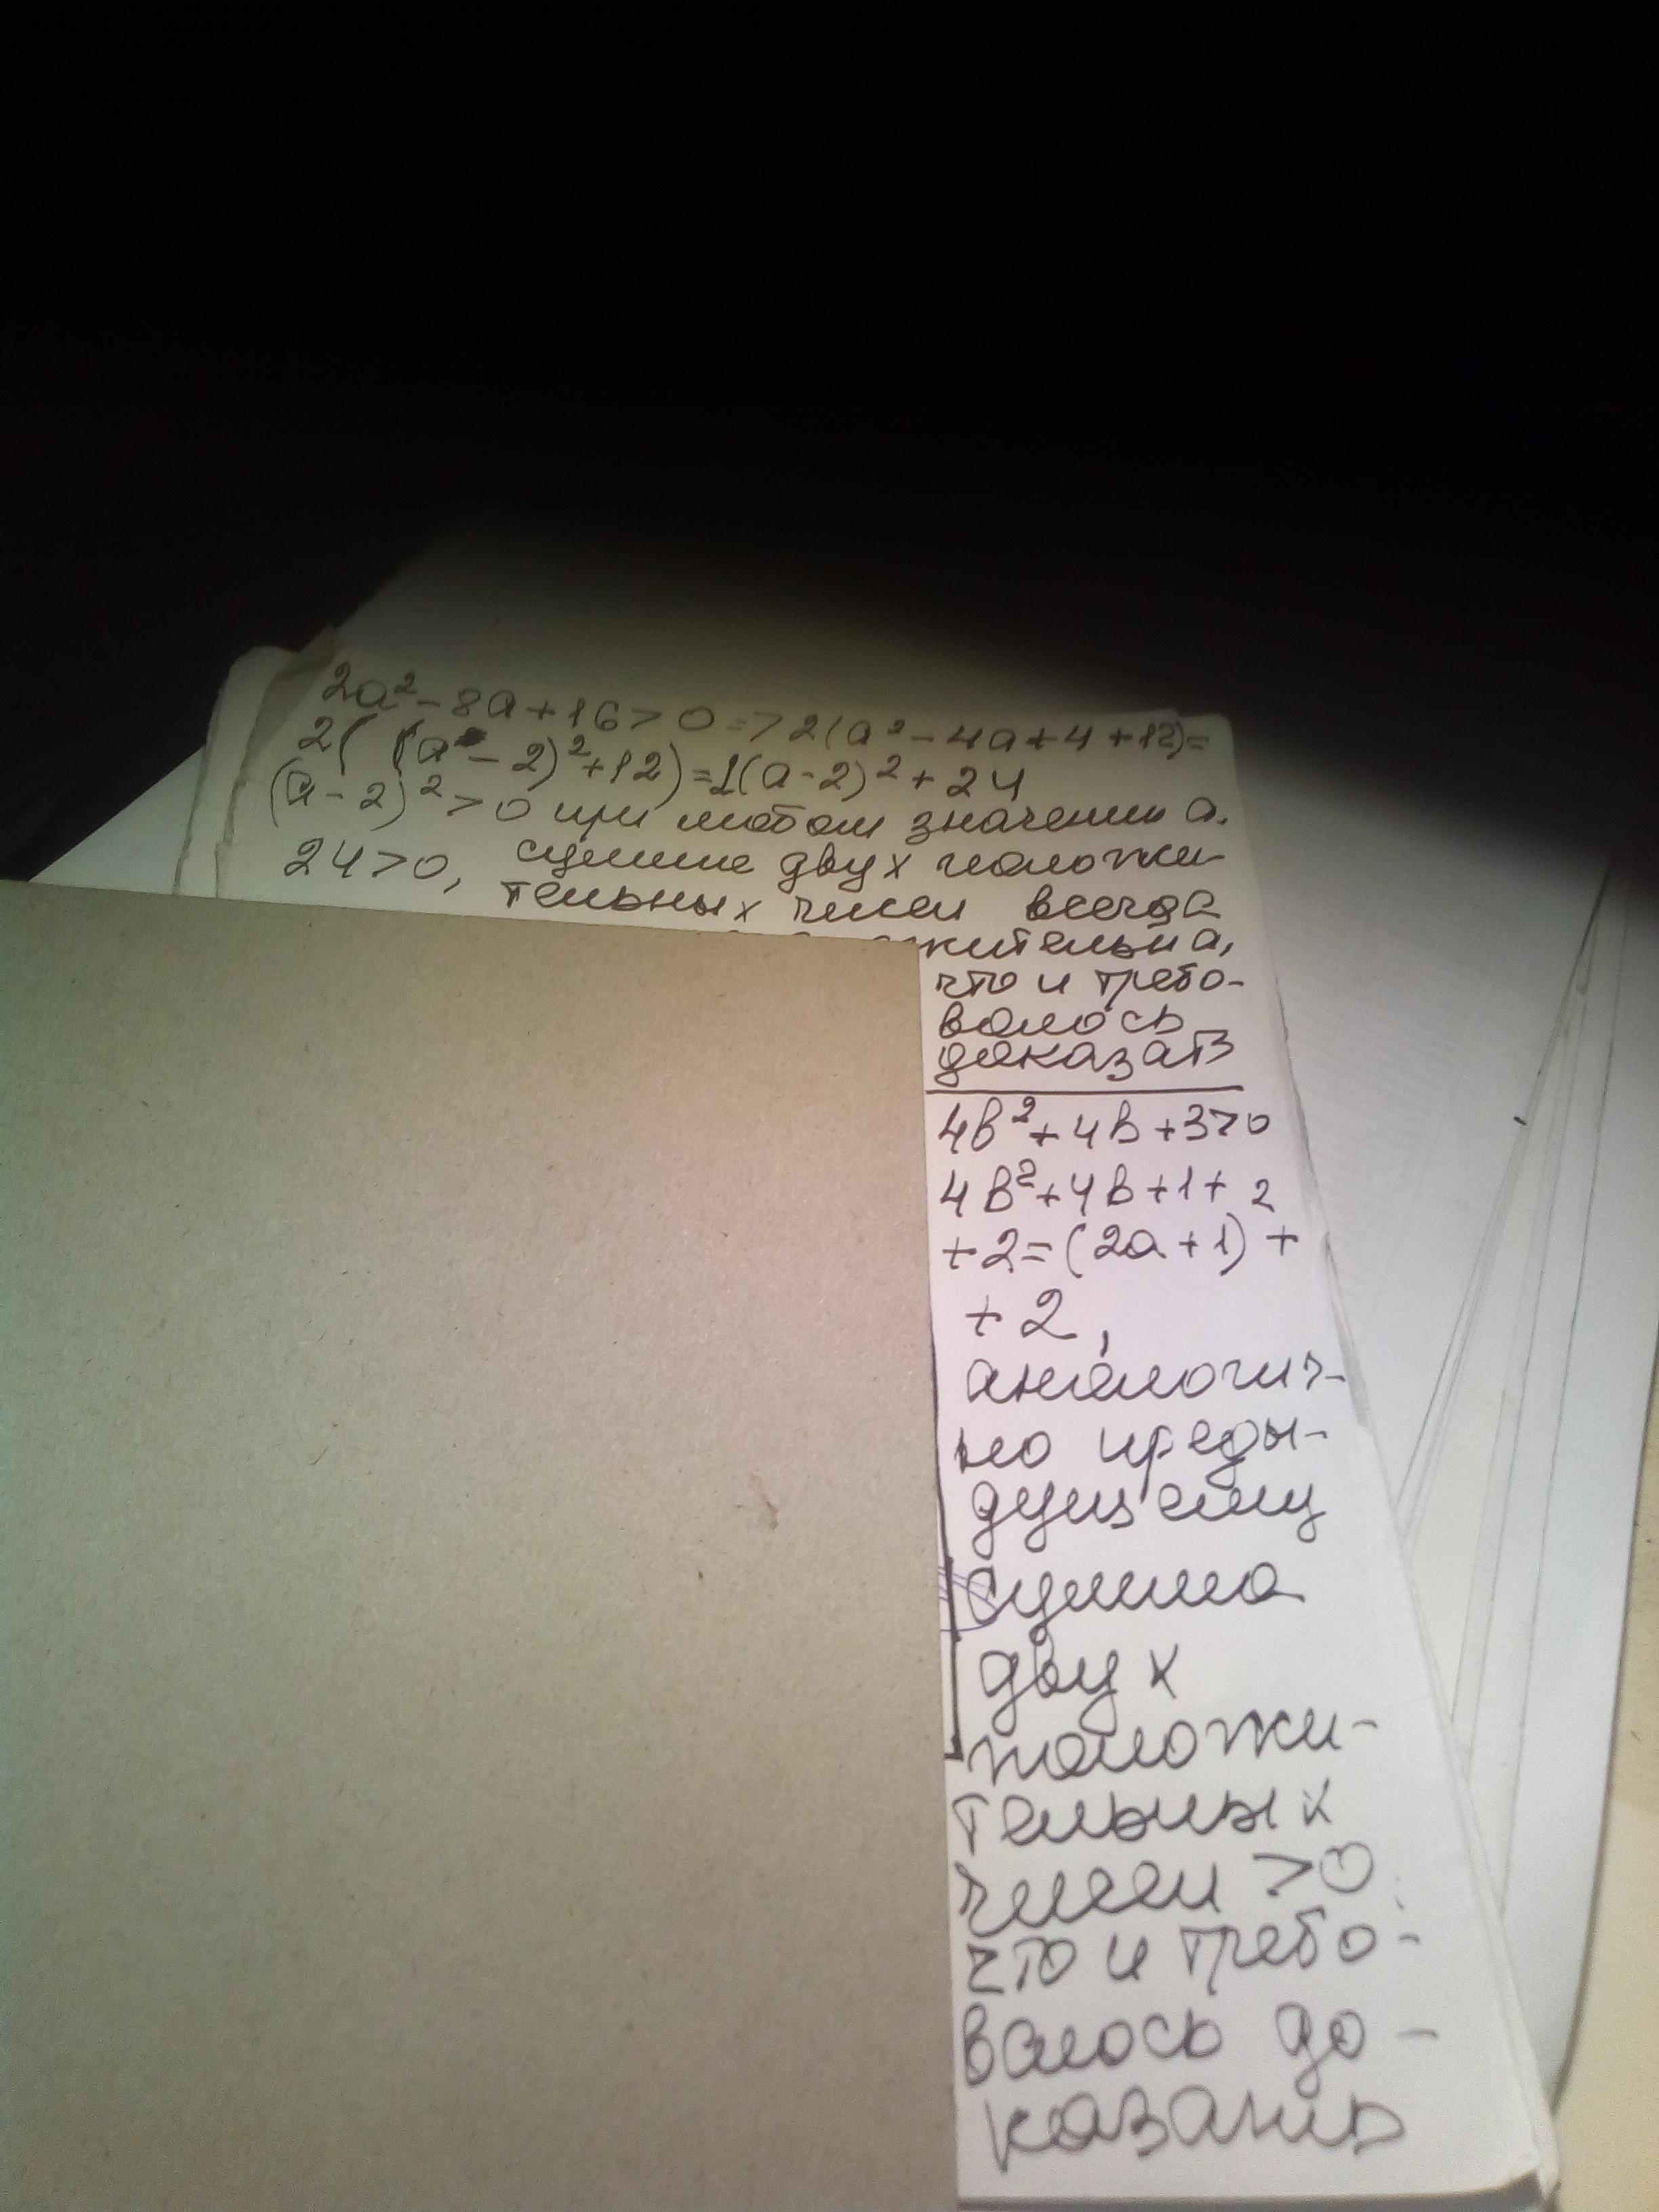 2a² - 8a + 16 > 0 => 2(a² - 4a + 4 + 12) =
2((a - 2)² + 12) = 2(a - 2)² + 24
(a - 2)² > 0 при любом значении a.
24 > 0, сумма двух положи-
тельных чисел всегда
жительна,
что и требо-
валось
доказать
4b² + 4b + 3 > 0
4b² + 4b + 1 +
+ 2 = (2a + 1)² +
+ 2,
аналогич-
но преды-
дущему
сумма
двух
положи-
тельных
чисел > 0
что и требо-
валось до-
казать